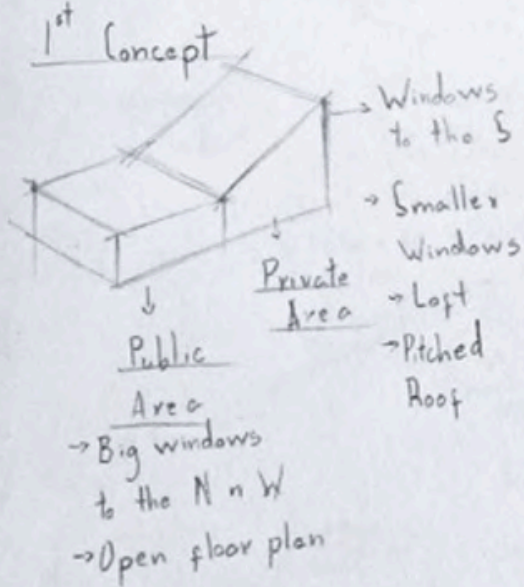 1st Concept
→ Windows
to the S
→ Smaller
Windows
→ Loft
→ Pitched
Roof
Private
Area
Public
Area
→ Big windows
to the N n W
→ Open floor plan